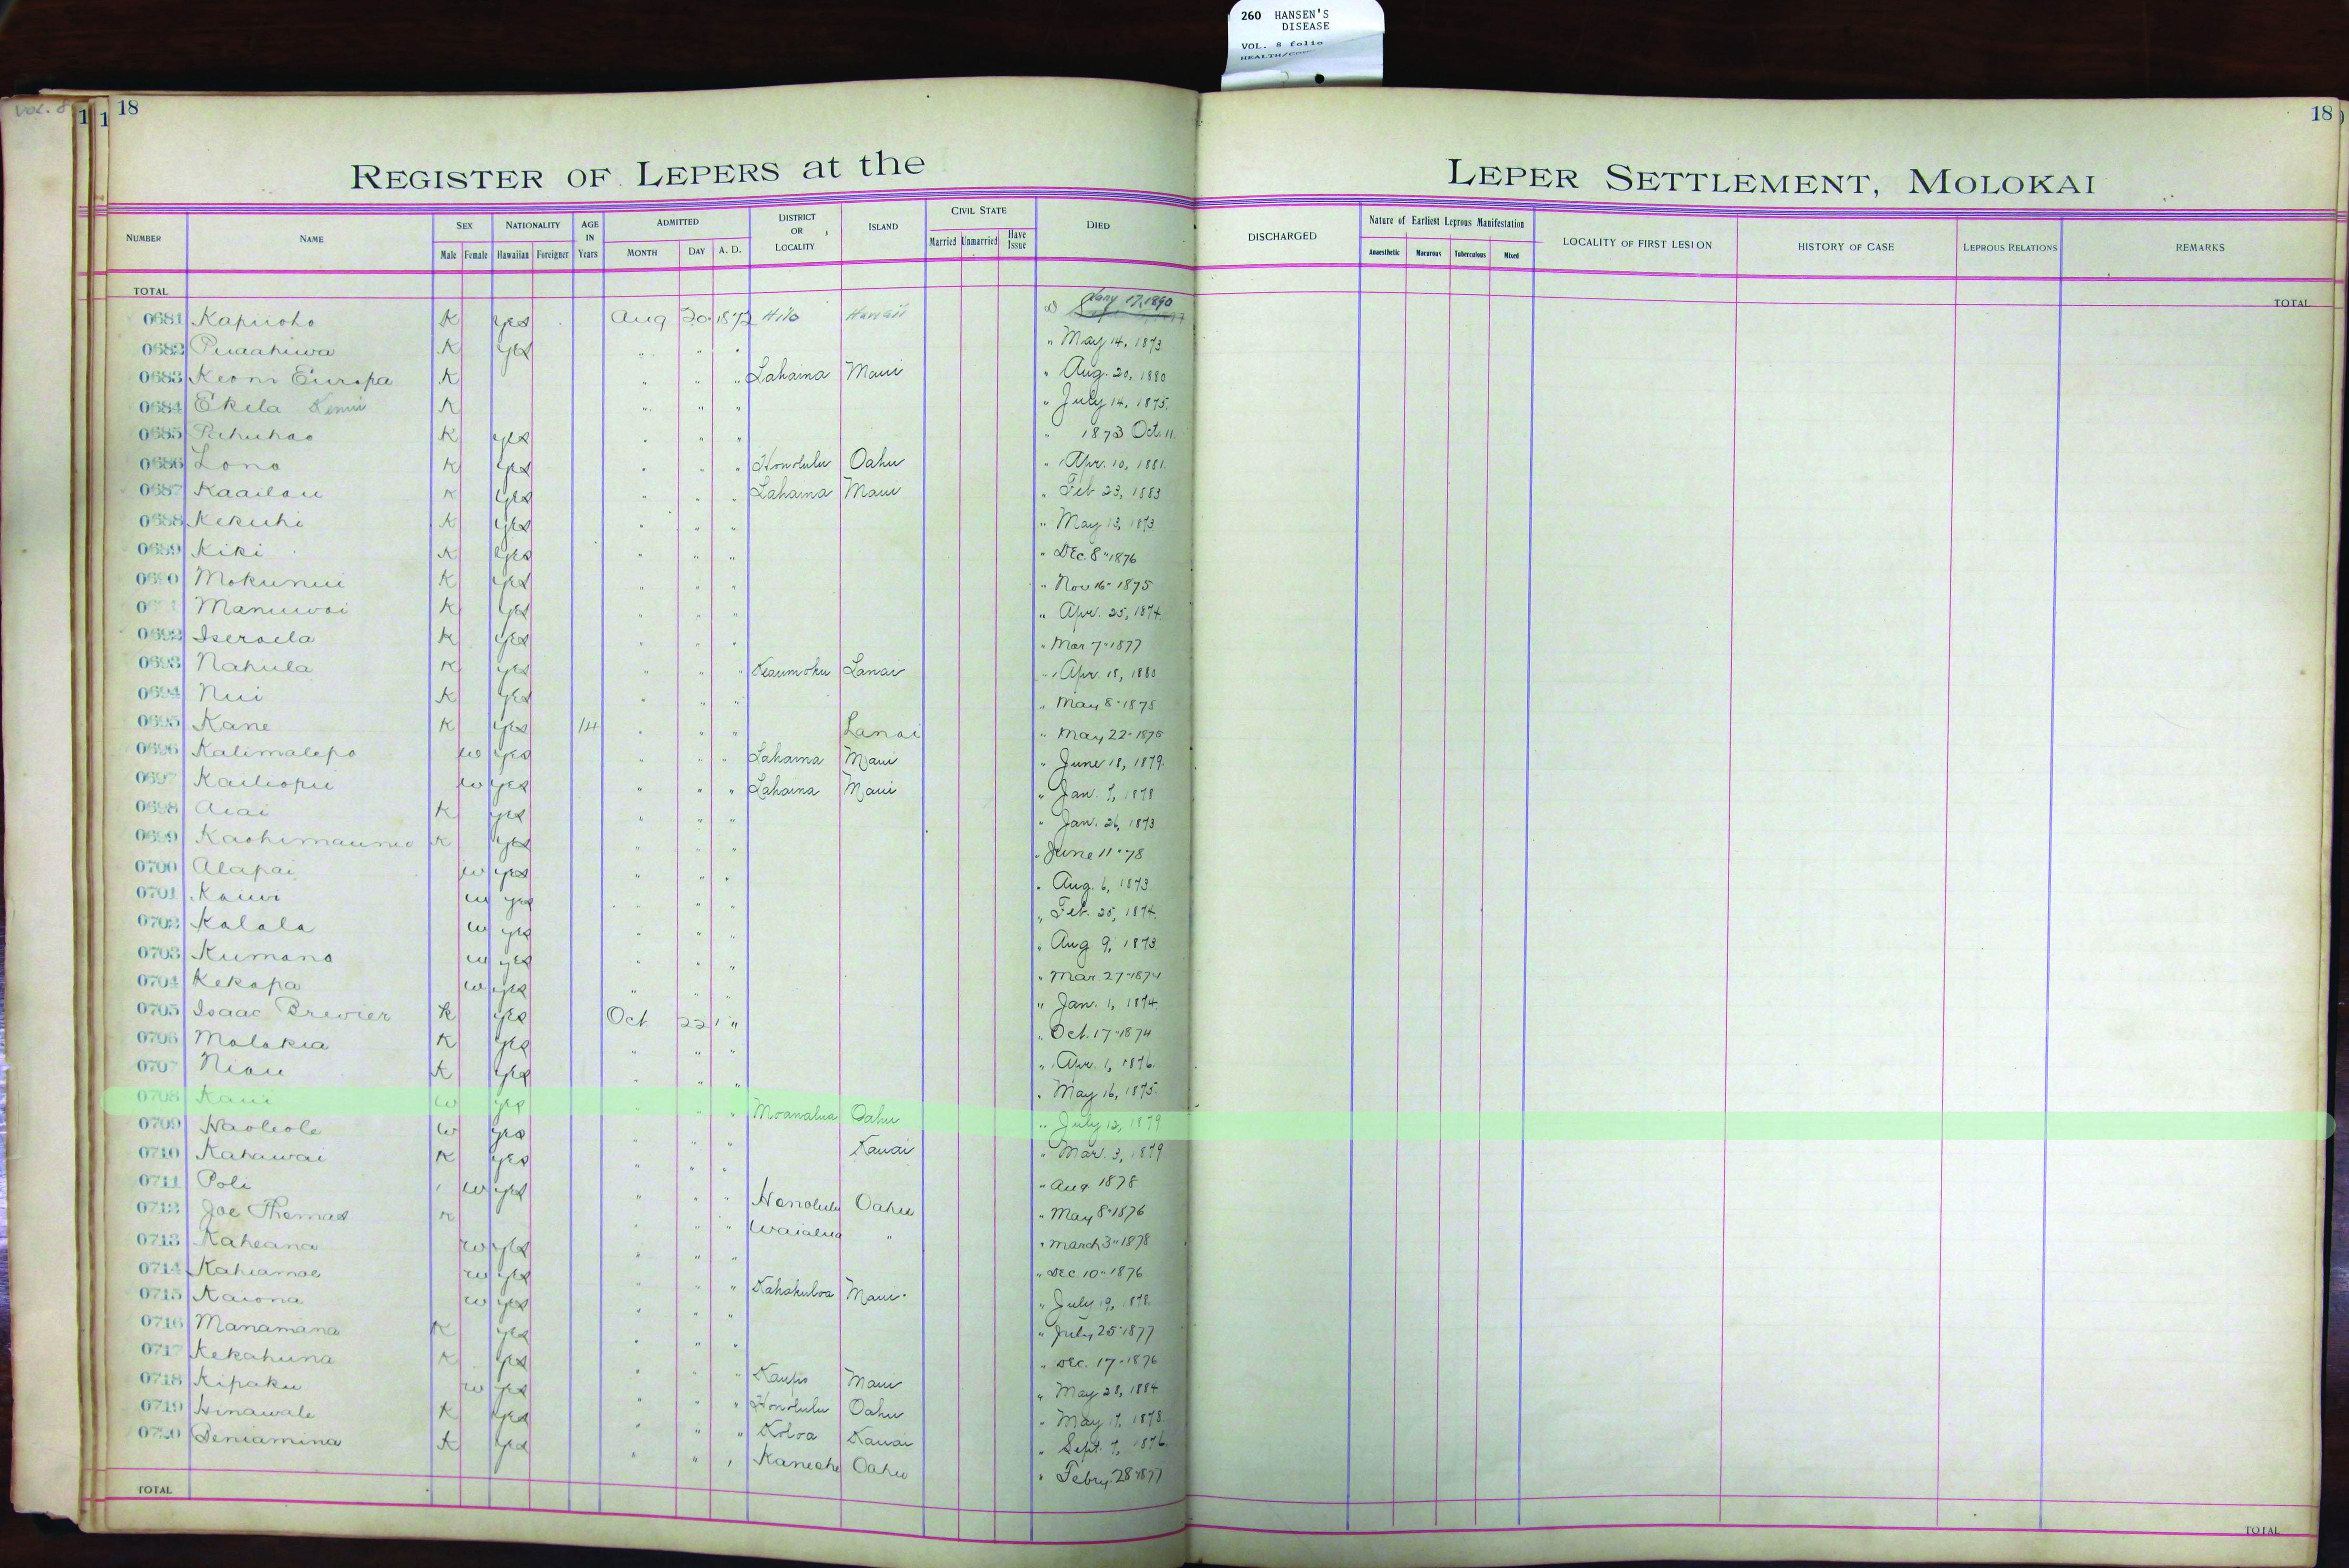 260 HANSEN'S
DISEASE
VOL. 8 folio
VOL. 8
18
18
REGISTER OF LEPERS at the LEPER SETTLEMENT, MOLOKAI
NUMBER NAME SEX Male Female NATIONALITY Hawaiian Foreigner AGE IN Years ADMITTED MONTH DAY A. D. DISTRICT OR LOCALITY ISLAND CIVIL STATE Married Unmarried Have Issue DIED DISCHARGED Nature of Earliest Leprous Manifestation Anaesthetic Macurous Tuberculous Mixed LOCALITY OF FIRST LESION HISTORY OF CASE LEPROUS RELATIONS REMARKS
TOTAL TOTAL
0681 Kapuoho K yes Aug 20 1872 Hilo Hawaii Jany 17, 1890
0682 Puaahiwa K yes " " " " May 14, 1873
0683 Keoni Europa K " " " Lahaina Maui " Aug. 20, 1880
0684 Ekela K " " " " July 14, 1875.
0685 Pahuhao K yes " " " " 1873 Oct. 11
0686 Lono K yes " " " Honolulu Oahu " Apr. 10, 1881.
0687 Kaailau K yes " " " Lahaina Maui " Feb 23, 1883
0688 Kekuhi K yes " " " " May 13, 1873
0689 Kiki K yes " " " " Dec. 8" 1876
0690 Mokunui K yes " " " " Nov 16" 1875
Manuwai K yes " " " " Apr. 25, 1874.
0692 Iseraela K yes " " " " Mar 7" 1877
0693 Nahula K yes " " " Keaumoku Lanai " Apr. 18, 1880
0694 Nui K yes " " " " May 8" 1875
0695 Kane K yes 14 " " " Lanai " May 22" 1875
0696 Kalimalepo w yes " " " Lahaina Maui " June 18, 1879.
0697 Kailiopu w yes " " " Lahaina Maui " Jan. 7, 1878
0698 Aiai K yes " " " " Jan. 26, 1873
0699 K yes " " " " June 11" 78
0700 Alapai w yes " " " " Aug. 6, 1873
0701 Kauwi w yes " " " " Feb. 25, 1874.
0702 Kalala w yes " " " " Aug 9, 1873
0703 Kumano w yes " " " " Mar 27" 1874
0704 Kekapa w yes " " " " Jan. 1, 1874.
0705 Isaac Brewier K yes Oct 22 " " Oct. 17" 1874
0706 Malokia K yes " " " " Apr. 1, 1876.
0707 Niau K yes " " " " May 16, 1875.
0708 Kaui w yes " " " Moanalua Oahu " July 12, 1879
0709 Haoleole w yes " " " Kauai " Mar. 3, 1879
0710 Kahawai K yes " " " " Aug 1878
0711 Poli w yes " " " Honolulu Oahu " May 8" 1876
0712 Joe Thomas K " " " Waialua " " March 3" 1878
0713 Kaheana w yes " " " " Dec. 10" 1876
0714 Kahiamoe w yes " " " Kahakuloa Maui " July 19, 1878.
0715 Kaiona w yes " " " " July 25" 1877
0716 Manamana K yes " " " " Dec. 17" 1876
0717 Kekahuna K yes " " " Kaupo Maui " May 28, 1884
0718 Kipaku w yes " " " Honolulu Oahu " May 17, 1878.
0719 Hinawale K yes " " " Koloa Kauai " Sept. 7, 1876.
0720 Beniamina K yes " " " Kaneohe Oahu " Febry. 28" 1877
TOTAL TOTAL